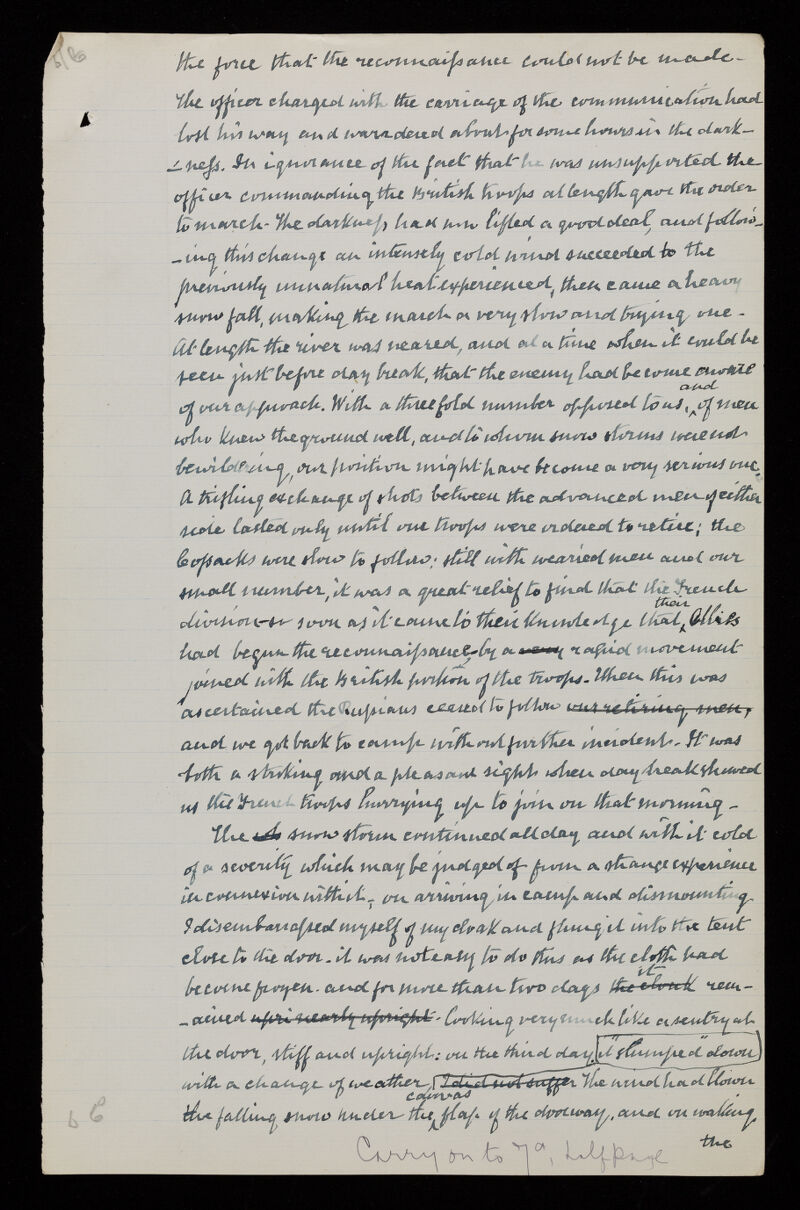 the force that the reconnaiſsance could not be made -
The officer charged with the carriage of the communication had
lost his way and wandered about for some hours in the dark-
-neſs. In ignorance of the fact that he was unsupported the
officer commanding the British troops at length gave the order
to march. The darkneſs had now lifted a good deal, and follow-
-ing this change an intensely cold wind succeeded to the
previously unnatural heat experienced, then came a heavy
snow fall, making the march a very slow and trying one -
At length the river was neared, and at a time when it could be
seen just before day break, that the enemy had become aware
of our approach. With a threefold number opposed to us, and of men
who knew the ground well, and to whom snow storms were not
bewildering, our position might have become a very serious one.
A trifling exchange of shots between the advanced men of either
side lasted only until our troops were ordered to retire; the
Coſsacks were slow to follow; still with wearied men and our
small number, it was a great relief to find that the French
division so soon as it came to their knowledge that their Allies
had begun the reconnaiſsance, by a very rapid movement
joined with the British portion of the troops. When this was
ascertained the Ruſsians ceased to follow our retiring men,
and we got back to camp without further incident. It was
both a striking and a pleasant sight when day break showed
us the French troops hurrying up to join on that morning -
The snow storm continued all day and with it cold
of a severity which may be judged of from a strange experience
in connexion with it, on arriving in camp and dismounting
I disembarraſsed myself of my cloak and flung it into the tent
close to the door. it was not easy to do this as the cloth had
become frozen. and for more than two days the cloak it rem-
-ained upri nearly upright. looking very much like a sentry at
the door, stiff and upright: on the third day it "slumped" down
with a change of weather, I did not suffer The wind had blown
the falling snow under the canvas flap of the doorway, and on waking
the
Carry on to 7a, half page